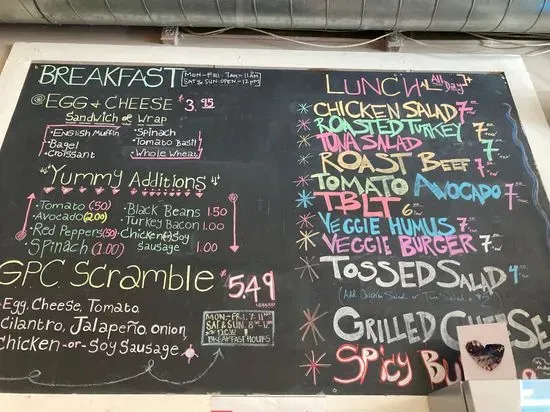 BREAKFAST MON-FRI 7AM-11AM
SAT & SUN. OPEN-12PM
@EGG & CHEESE $3.95
Sandwich or Wrap
•English Muffin •Spinach
•Bagel •Tomato Basil
•Croissant •Whole Wheat
Yummy Additions
•Tomato (50) •Black Beans 1.50
•Avocado (2.00) •Turkey Bacon 1.00
•Red Peppers (50) •Chicken or Soy
•Spinach (1.00) Sausage 1.00
GPC Scramble $5.49
Egg, Cheese, Tomato
Cilantro, Jalapeño, Onion
Chicken -or- Soy Sausage
MON-FRI. 7-11
SAT & SUN. 8-12
NEW
BREAKFAST HOURS
LUNCH All Day!
CHICKEN SALAD 7
ROASTED TURKEY 7
TUNA SALAD 7
ROAST BEEF 7
TOMATO AVOCADO 7
TBLT 6
VEGGIE HUMUS 7
VEGGIE BURGER 7
TOSSED SALAD 4
(Add Chicken Salad or Tuna Salad
GRILLED CHEESE
SPICY